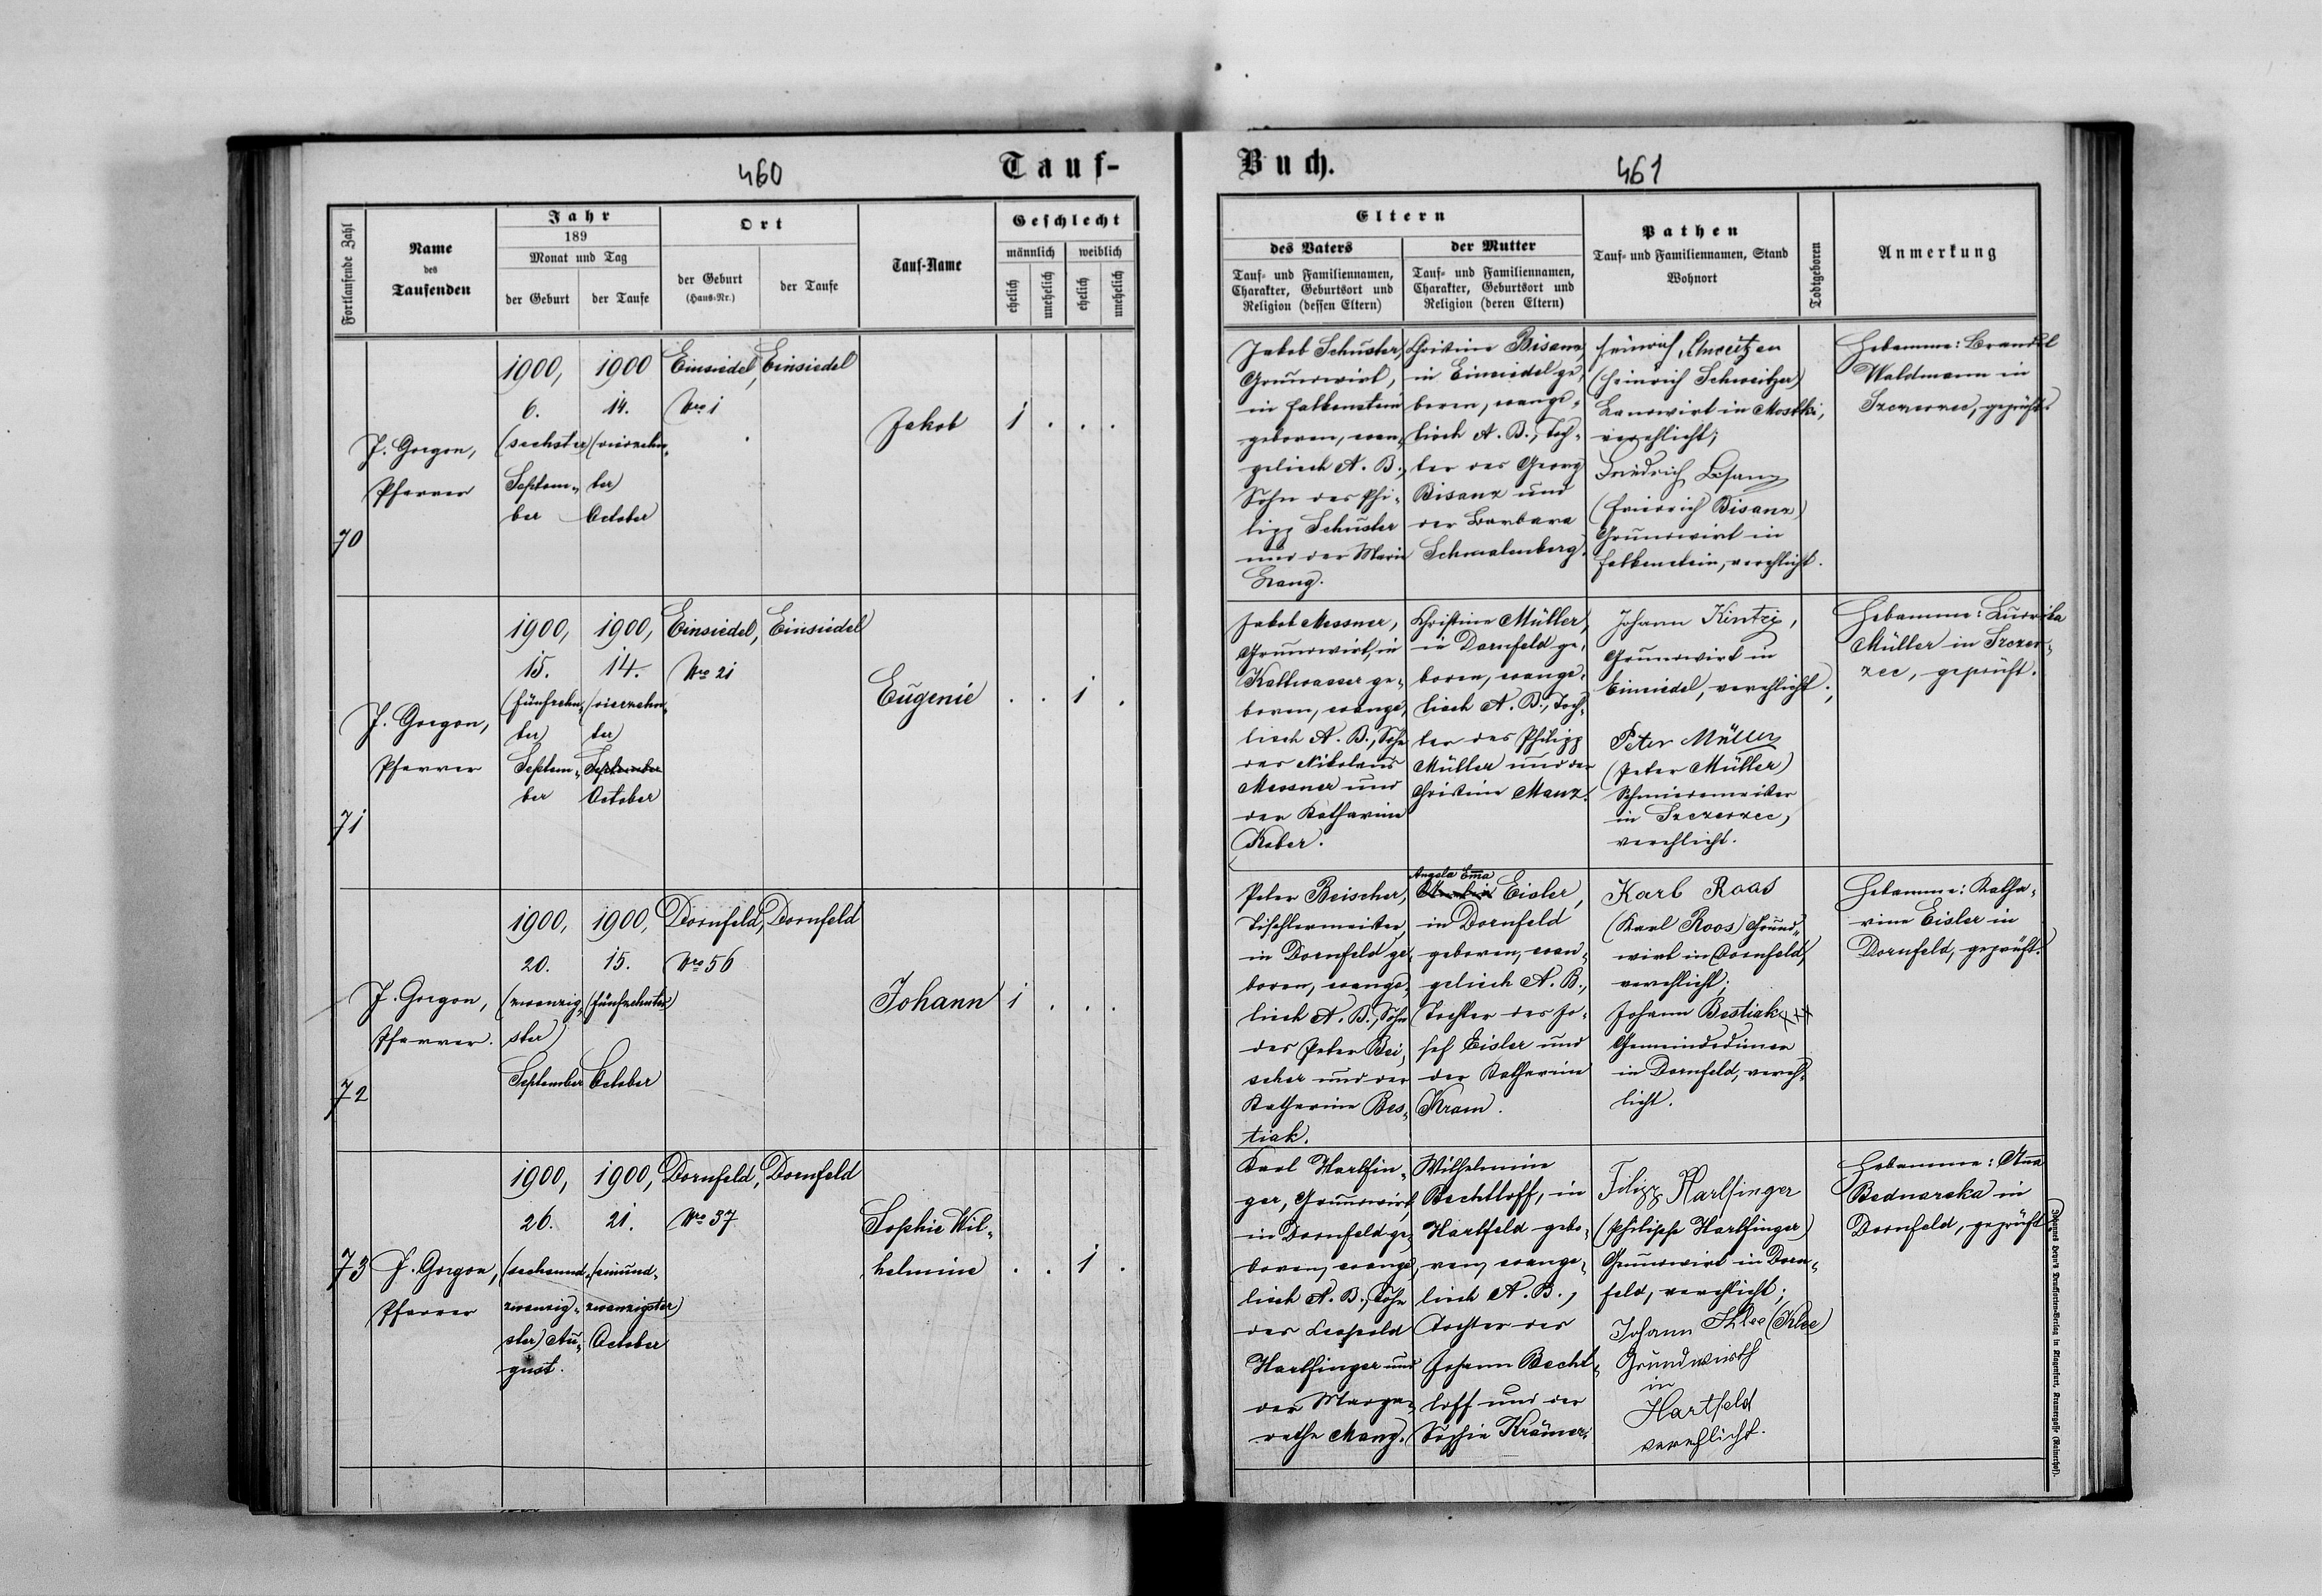 460
Tauf-
Fortlaufende Zahl
Name
des
Taufenden
Jahr
189
Monat und Tag
der Geburt
der Taufe
Ort
der Geburt
(Haus-Nr.)
der Taufe
Tauf-Name
Geschlecht
männlich
weiblich
ehelich
unehelich
ehelich
unehelich
70
J. Gorgon,
Pfarrer
1900,
6.
(sechster)
Septem-
ber
1900
14.
(vierzehn-
ter)
October
Einsiedel,
Nro 1
Einsiedel
Jakob
1 . . .
71
J. Gorgon,
Pfarrer
1900,
15.
(fünfzehn-
ter)
Septem-
ber
1900,
14.
(vierzehn-
ter)
September
October
Einsiedel,
Nro 21
Einsiedel
Eugenie
. . 1 .
72
J. Gorgon,
Pfarrer.
1900,
20.
(zwanzig-
ster)
September
1900,
15.
(fünfzehnter)
October
Dornfeld,
Nro 56
Dornfeld
Johann
1 . . .
73
J. Gorgon,
Pfarrer
1900,
26.
(sechsund-
zwanzig-
ster) Au-
gust.
1900,
21.
(einund-
zwanzigster)
October
Dornfeld,
Nro 37
Dornfeld
Sophie Wil-
helmine
. . 1 .
Buch.
461
Eltern
des Vaters
Tauf- und Familiennamen,
Charakter, Geburtsort und
Religion (dessen Eltern)
der Mutter
Tauf- und Familiennamen,
Charakter, Geburtsort und
Religion (deren Eltern)
Pathen
Tauf- und Familiennamen, Stand
Wohnort
Todtgeboren
Anmerkung
Jakob Schuster,
Grundwirt,
in Falkenstein
geboren, evan-
gelisch A. B.,
Sohn des Phi-
lipp Schuster
und der Marie
Lang.
Christine Bisanz,
in Einsiedel ge-
boren, evange-
lisch A. B., Toch-
ter des Georg
Bisanz und
der Barbara
Schmalenberg.
Heinrich
(Heinrich Schweitzer)
Landwirt in Mostki,
verehlicht;
Friedrich Bisanz
(Friedrich Bisanz)
Grundwirt in
Falkenstein, verehlicht.
Hebamme: Brandel
Waldmann in
Szczerzec, geprüft.
Jakob Messner,
Grundwirt, in
Kaltwasser ge-
boren, evange-
lisch A. B., Sohn
des Nikolaus
Messner und
der Katharine
Kaber.
Christine Müller,
in Dornfeld ge-
boren, evange-
lisch A. B., Toch-
ter des Philipp
Müller und der
Christine Manz.
Johann Kintzi,
Grundwirt in
Einsiedel, verehlicht;
Peter Müller
(Peter Müller)
Schmiedemeister
in Szczerzec,
verehlicht.
Hebamme: Ludwika
Müller in Szczer-
zec, geprüft.
Peter Beischer,
Tischlermeister,
in Dornfeld ge-
boren, evange-
lisch A. B., Sohn
des Peter Bei-
scher und der
Katharine Bes-
tiak.
Angela Ema
Eisler,
in Dornfeld
geboren, evan-
gelisch A. B.,
Tochter des Jo-
sef Eisler und
der Katharine
Kram.
Karl Roos
(Karl Roos) Grund-
wirt in Dornfeld,
verehlicht;
Johann Bestiak xxx
Gemeindediener
in Dornfeld, vereh-
licht.
Hebamme: Katha-
rine Eisler in
Dornfeld, geprüft.
Karl Harlfin-
ger, Grundwirt,
in Dornfeld ge-
boren, evange-
lisch A. B., Sohn
des Leopold
Harlfinger und
der Marga-
rethe Mang.
Wilhelmine
Bechtloff, in
Hartfeld gebo-
ren, evange-
lisch A. B.,
Tochter des
Johann Becht-
loff und der
Sophie Krämer.
Filipp Harlfinger
(Philipp Harlfinger)
Grundwirt in Dorn-
feld, verehlicht;
Johann Klee (Klee)
Grundwirth
in
Hartfeld
verehlicht.
Hebamme: Anna
Bednarska in
Dornfeld, geprüft.
Johannes Heyn's Drucksorten-Verlag in Klagenfurt, Kramergasse (Rainerhof).